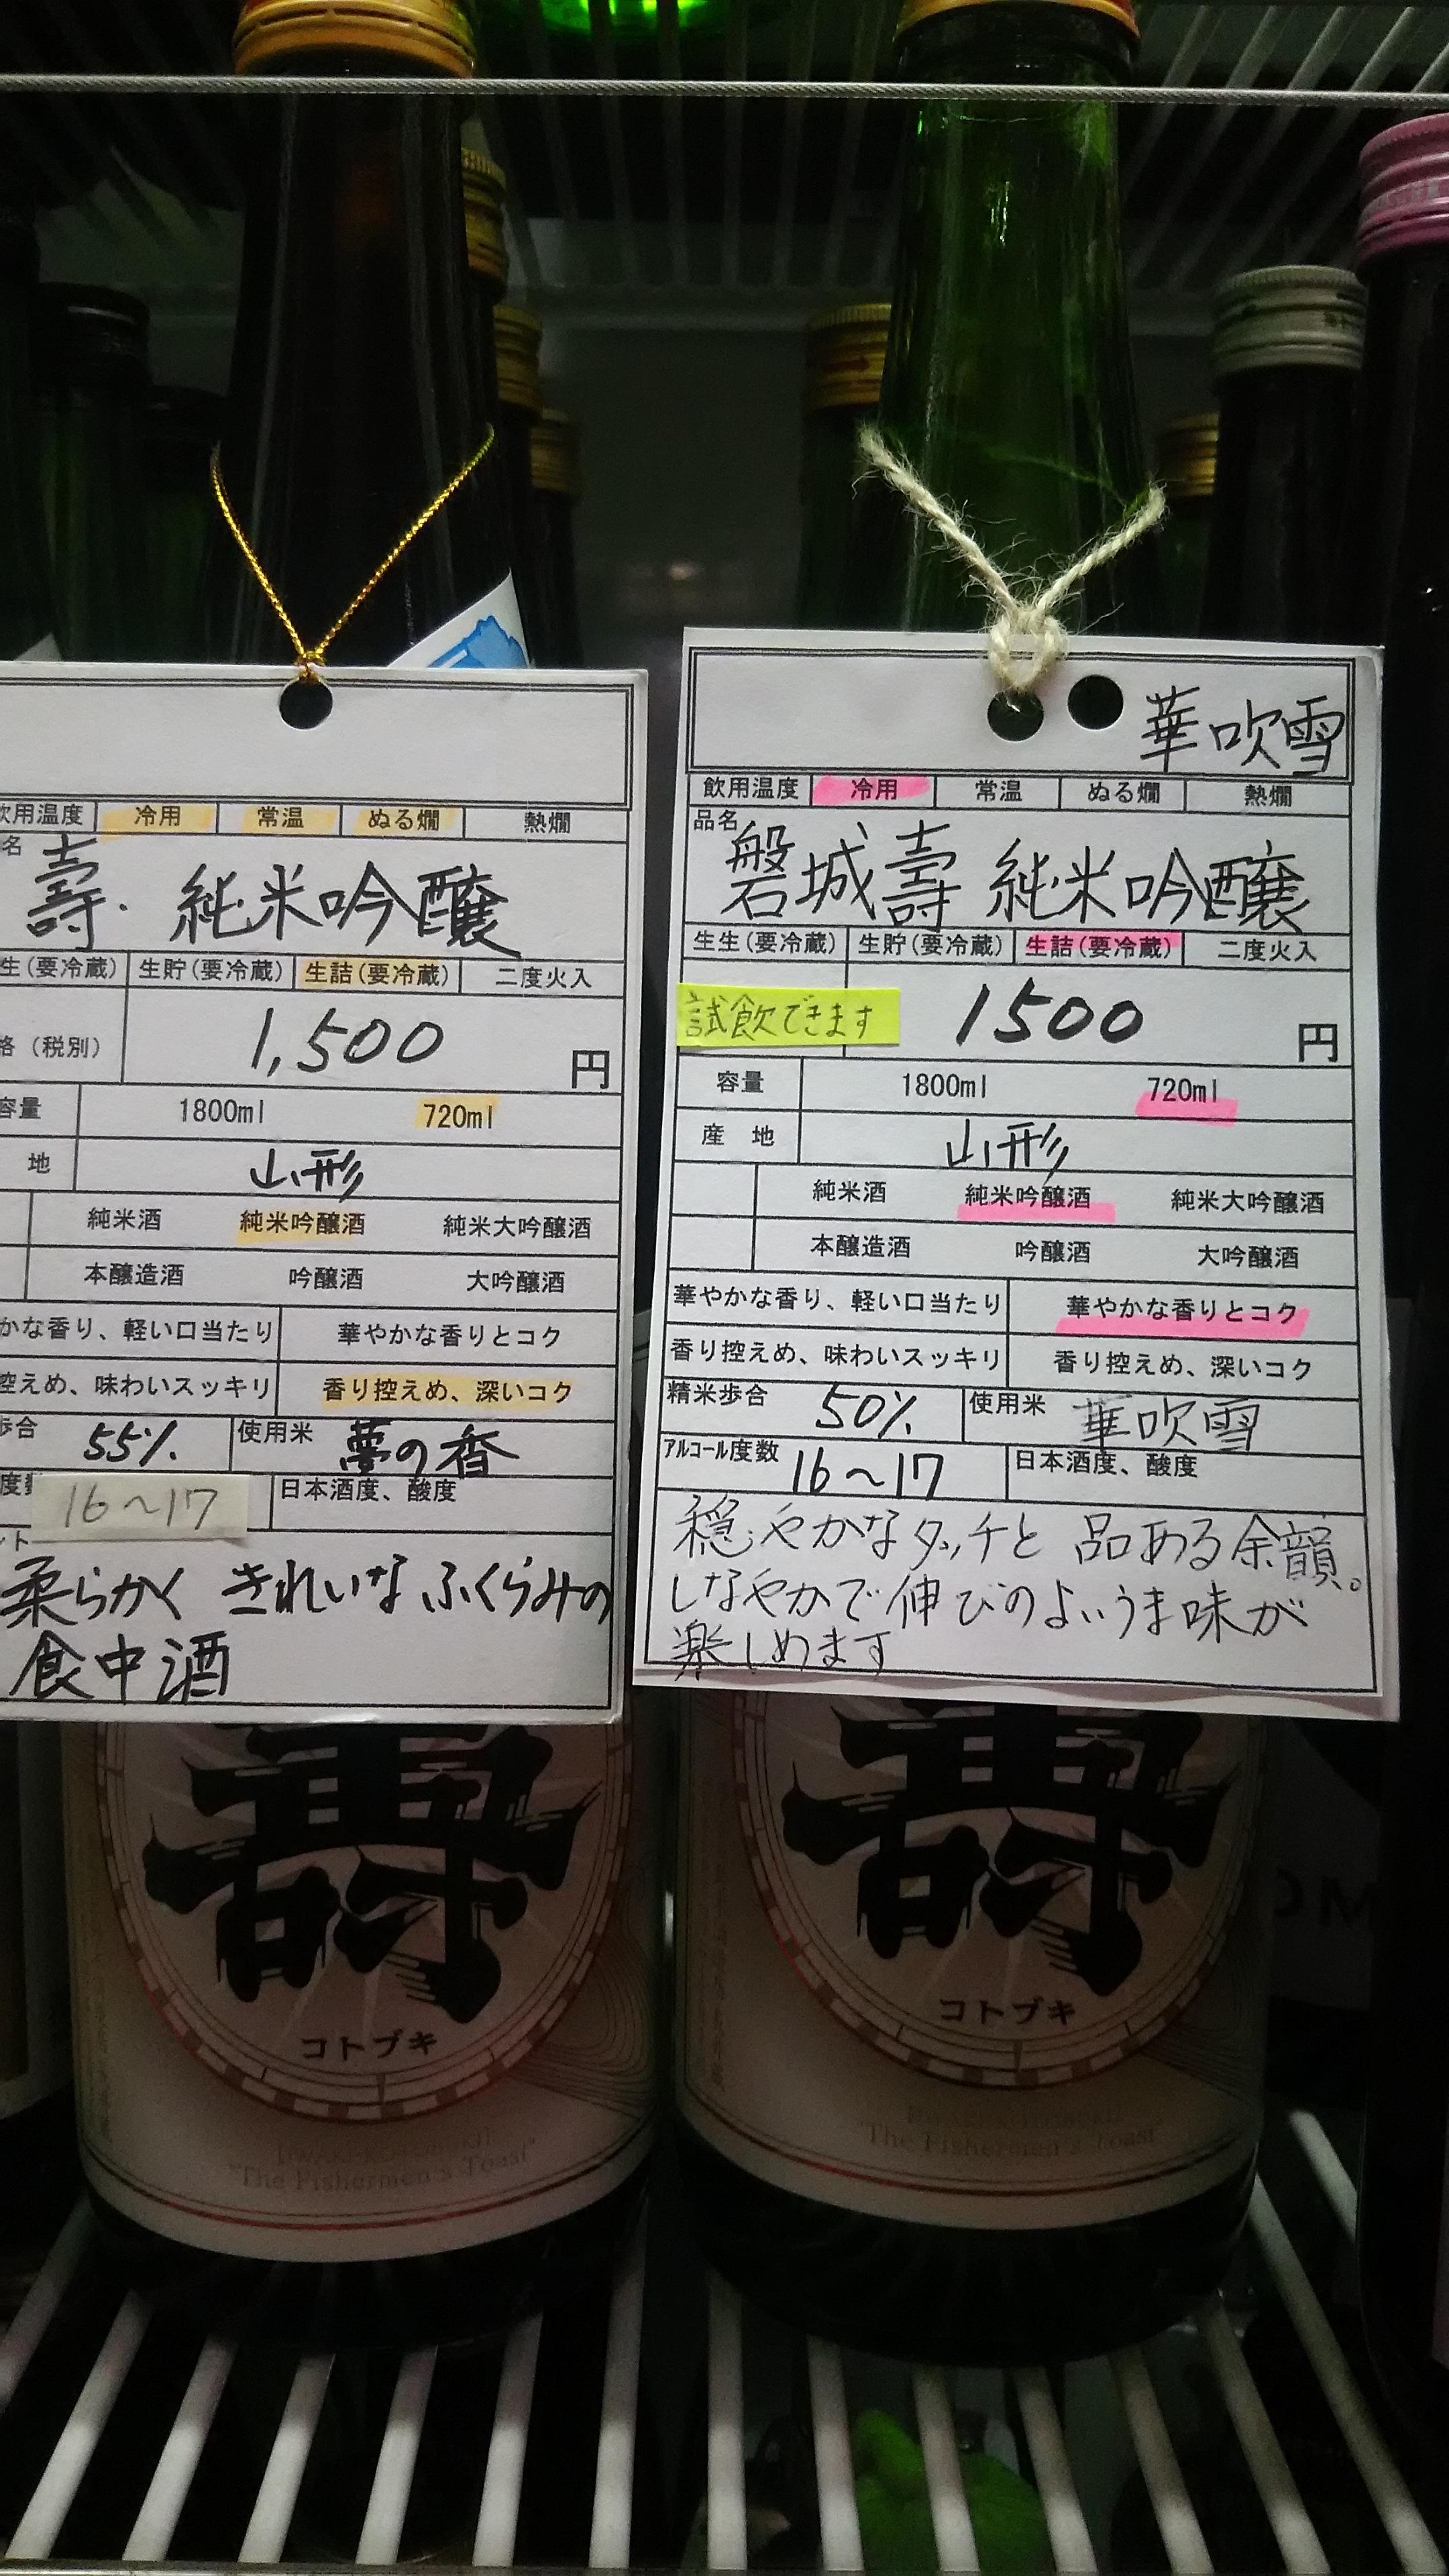 飲用温度 冷用 常温 ぬる燗 熱燗
名
壽 純米吟醸
生(要冷蔵) 生貯(要冷蔵) 生詰(要冷蔵) 二度火入
格(税別) 1,500 円
容量 1800ml 720ml
地 山形
純米酒 純米吟醸酒 純米大吟醸酒
本醸造酒 吟醸酒 大吟醸酒
かな香り、軽い口当たり 華やかな香りとコク
控えめ、味わいスッキリ 香り控えめ、深いコク
歩合 55% 使用米 夢の香
度数 16〜17 日本酒度、酸度
ット
柔らかく きれいな ふくらみの
食中酒
壽
コトブキ
"The Fishermen's Toast"
華吹雪
飲用温度 冷用 常温 ぬる燗 熱燗
品名
磐城壽 純米吟醸
生生(要冷蔵) 生貯(要冷蔵) 生詰(要冷蔵) 二度火入
試飲できます 1500 円
容量 1800ml 720ml
産地 山形
純米酒 純米吟醸酒 純米大吟醸酒
本醸造酒 吟醸酒 大吟醸酒
華やかな香り、軽い口当たり 華やかな香りとコク
香り控えめ、味わいスッキリ 香り控えめ、深いコク
精米歩合 50% 使用米 華吹雪
アルコール度数 16〜17 日本酒度、酸度
穏やかなタッチと 品ある余韻。
しなやかで伸びのよいうま味が
楽しめます
壽
コトブキ
"The Fishermen's Toast"